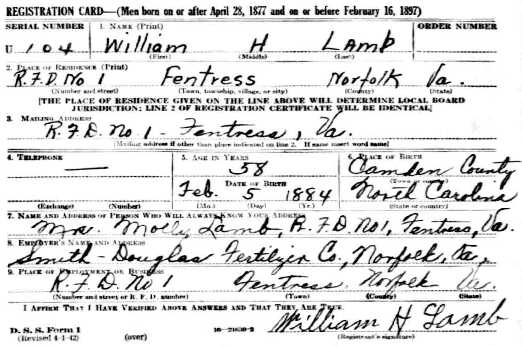 REGISTRATION CARD—(Men born on or after April 28, 1877 and on or before February 16, 1897)
SERIAL NUMBER 1. NAME (Print) ORDER NUMBER
U 104 William H Lamb
(First) (Middle) (Last)
2. PLACE OF RESIDENCE (Print)
R.F.D. No 1 Fentress Norfolk Va.
(Number and street) (Town, township, village, or city) (County) (State)
[THE PLACE OF RESIDENCE GIVEN ON THE LINE ABOVE WILL DETERMINE LOCAL BOARD
JURISDICTION; LINE 2 OF REGISTRATION CERTIFICATE WILL BE IDENTICAL]
3. MAILING ADDRESS
R.F.D. No 1 - Fentress, Va.
[Mailing address if other than place indicated on line 2. If same insert word same]
4. TELEPHONE 5. AGE IN YEARS 6. PLACE OF BIRTH
— 58 Camden County
DATE OF BIRTH (Town or county)
Feb. 5 1884 North Carolina
(Exchange) (Number) (Mo.) (Day) (Yr.) (State or country)
7. NAME AND ADDRESS OF PERSON WHO WILL ALWAYS KNOW YOUR ADDRESS
Mrs. Molly Lamb, R.F.D. No 1, Fentress, Va.
8. EMPLOYER'S NAME AND ADDRESS
Smith-Douglas Fertilizer Co., Norfolk, Va.,
9. PLACE OF EMPLOYMENT OR BUSINESS
R.F.D. No 1 Fentress Norfolk Va
(Number and street or R. F. D. number) (Town) (County) (State)
I AFFIRM THAT I HAVE VERIFIED ABOVE ANSWERS AND THAT THEY ARE TRUE.
William H Lamb
D. S. S. Form 1
(Revised 4-1-42) (over) 16-21630-2 (Registrant's signature)